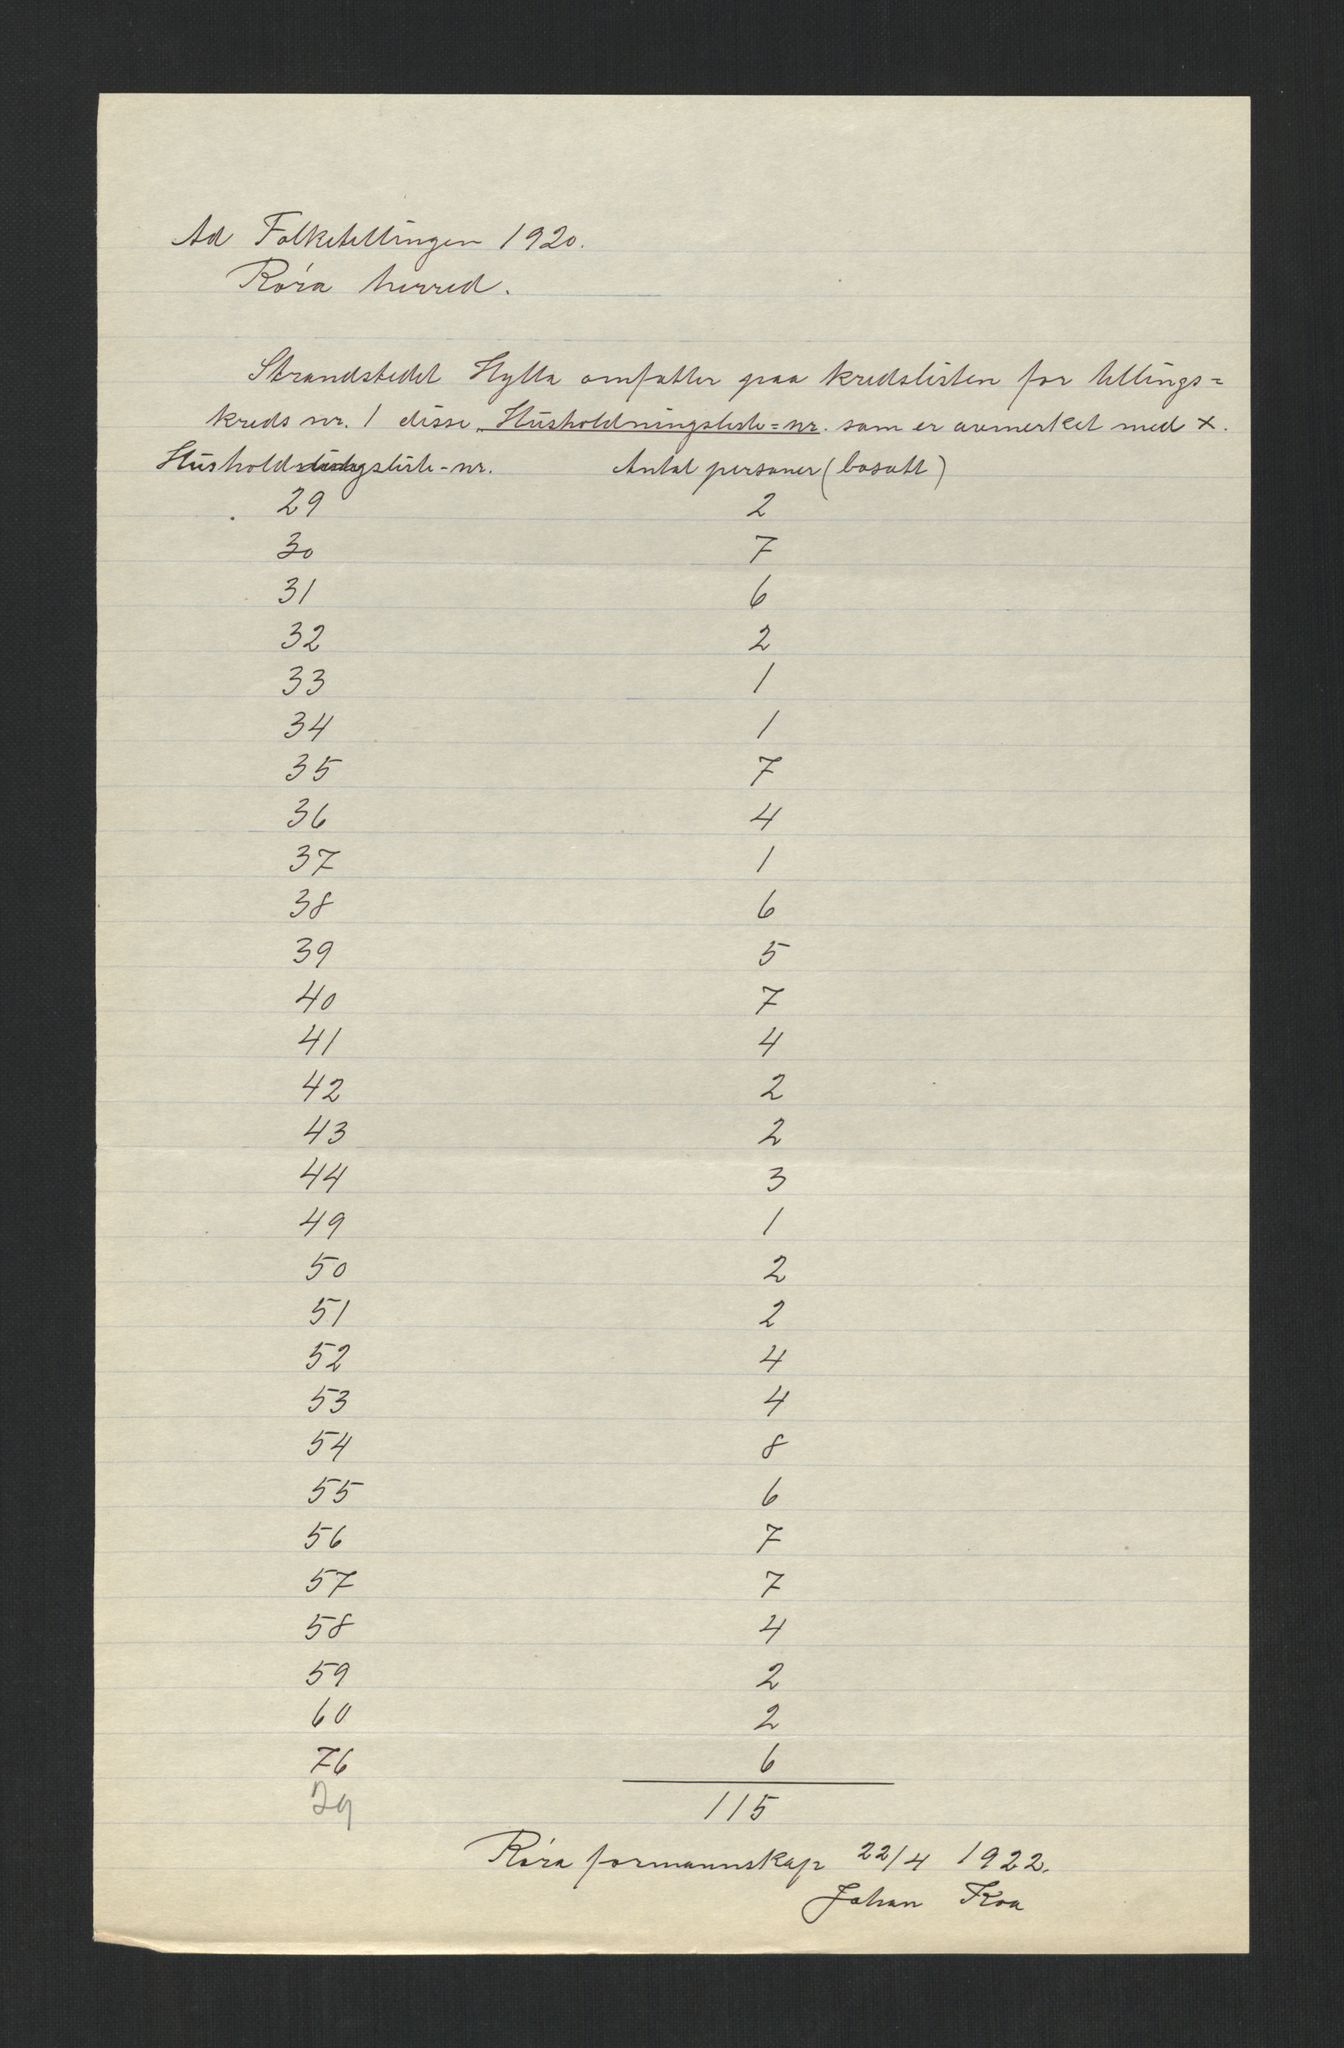 Ad Folketellingen 1920.
Róra herred.
Strandstedet Hylla omfatter paa kredslisten for tellings=
kreds nr. 1 disse „Husholdningsliste=nr. som er avmerket med x.
Husholdningsliste-nr. Antal personer (bosatt)
29 2
30 7
31 6
32 2
33 1
34 1
35 7
36 4
37 1
38 6
39 5
40 7
41 4
42 2
43 2
44 3
49 1
50 2
51 2
52 4
53 4
54 8
55 6
56 7
57 7
58 4
59 2
60 2
76 6
29 115
Róra formannskap 22/4 1922.
Johan